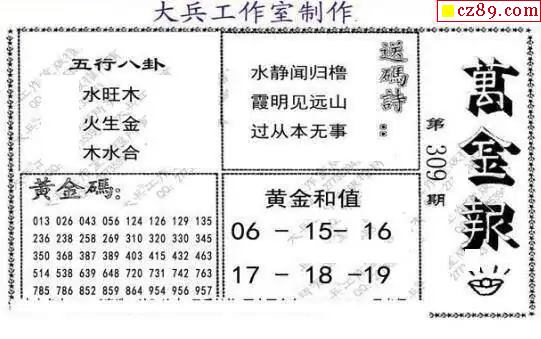 大兵工作室制作
cz89.com
五行八卦
水旺木
火生金
木水合
送碼詩：
水静闻归橹
霞明见远山
过从本无事
萬金報
第309期
黄金碼：
013 026 043 056 124 126 129 135
236 238 258 269 310 320 330 345
350 368 387 389 403 415 432 463
514 538 639 648 720 731 742 763
785 786 852 859 864 954 956 957
黄金和值
06 - 15- 16
17 - 18 -19